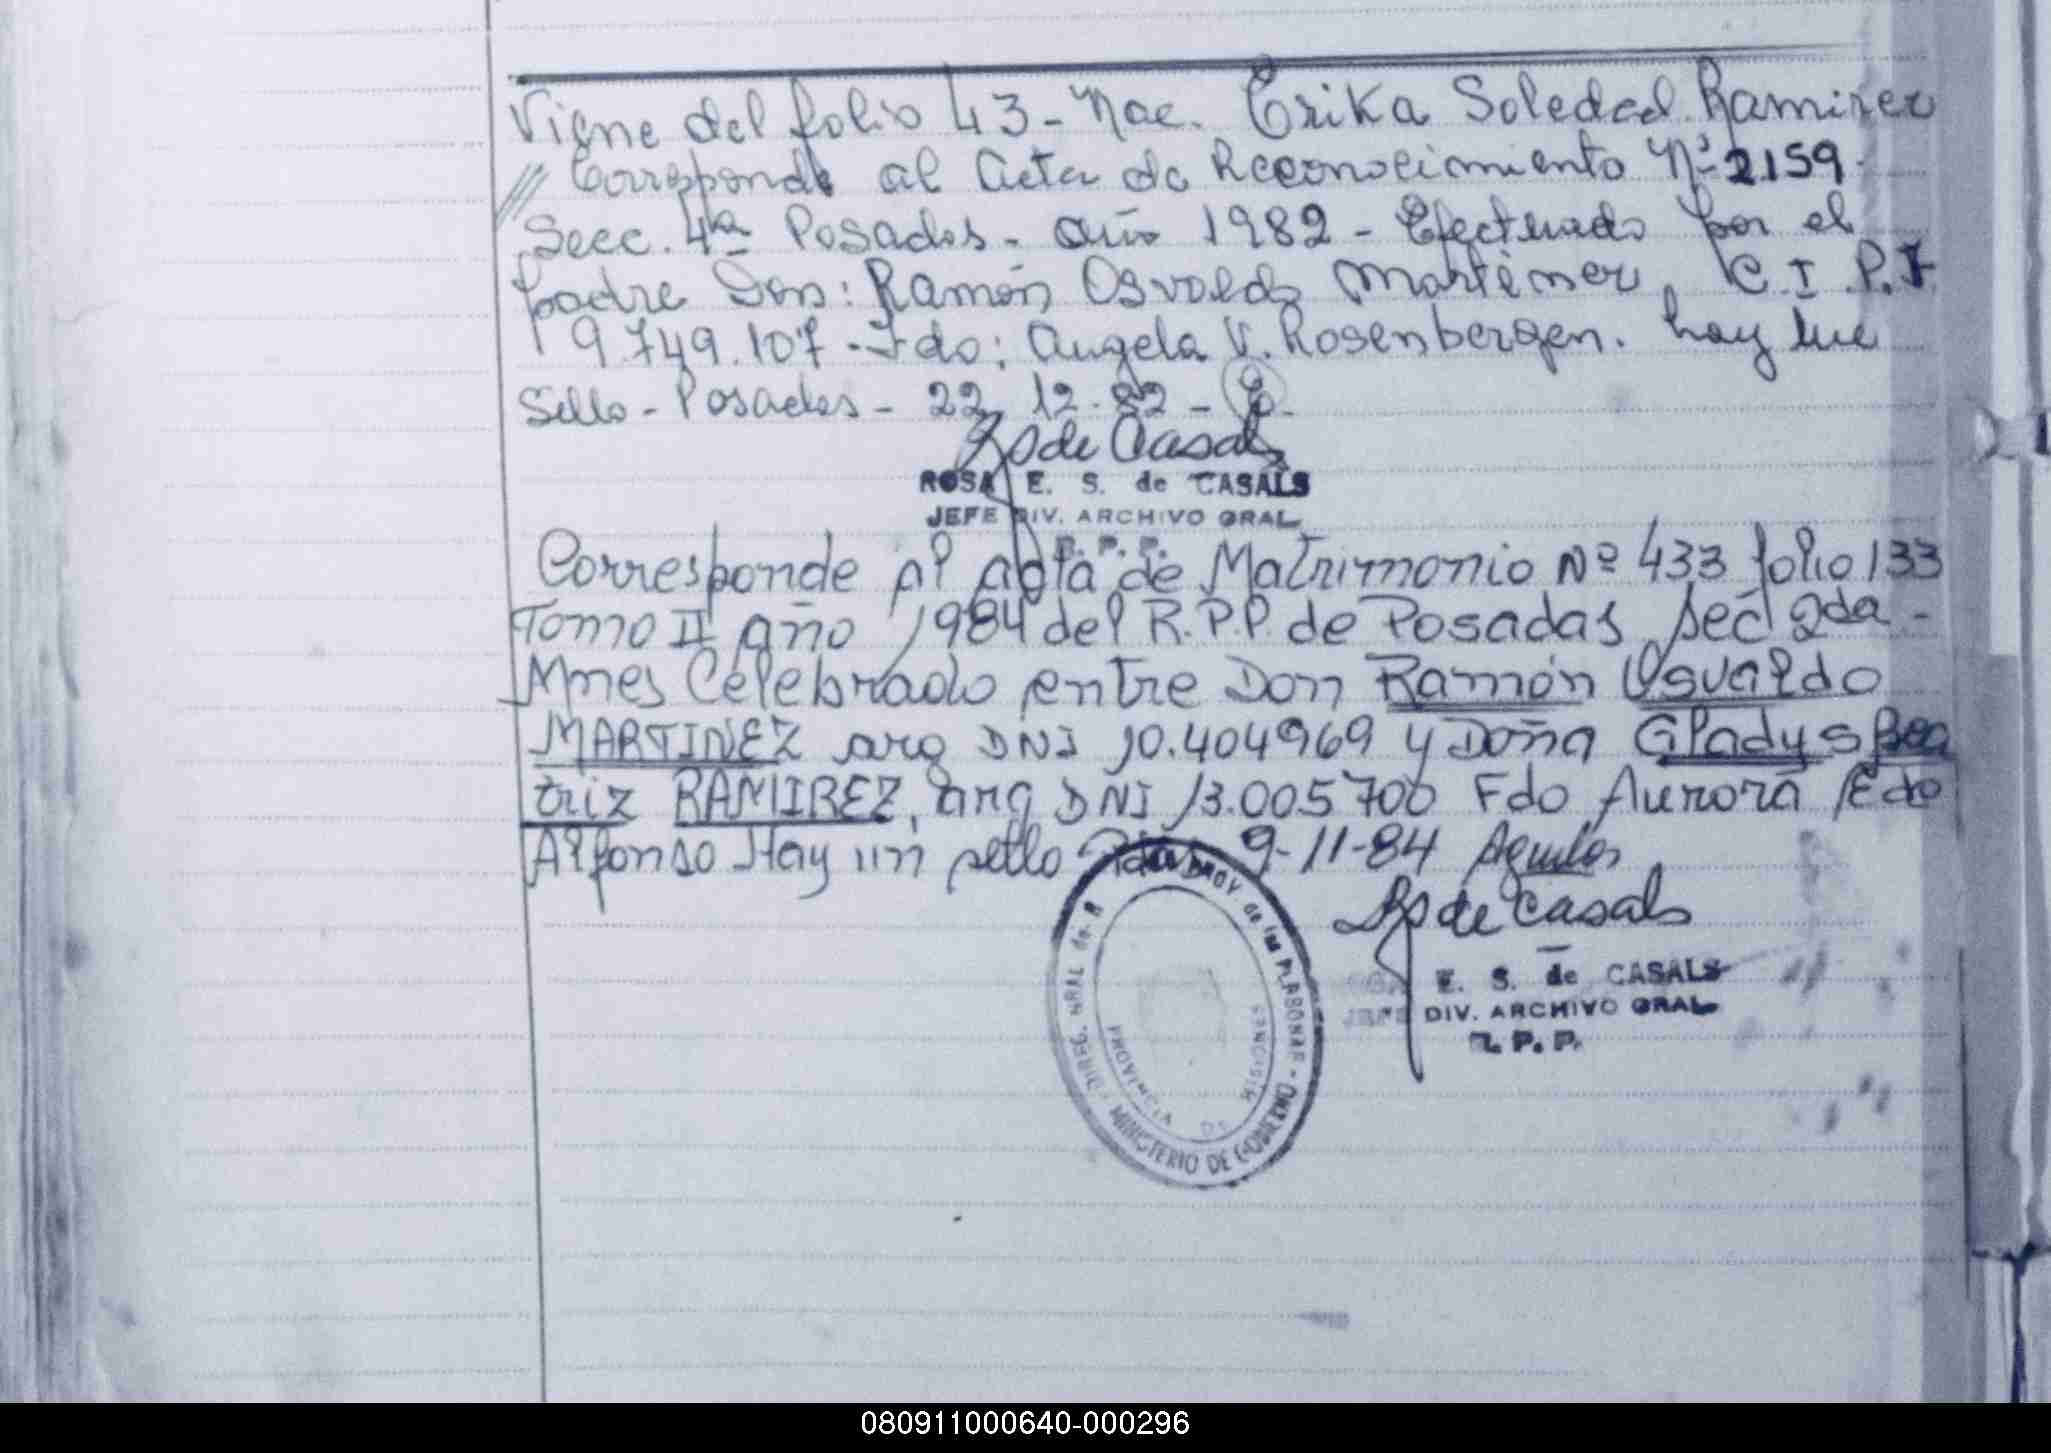 Viene del folio 43 - Nac. Erika Soledad Ramirez
// Corresponde al Acta de Reconocimiento Nº 2159.
Secc. 4ta Posadas - Año 1982 - Efectuado por el
padre Don: Ramón Osvaldo Martinez, C.I.P.F
9.749.107 - Fdo: Angela V. Rosenbergen. hay un
Sello - Posadas - 22 12-82 -
Rs de Casals
ROSA E. S. de CASALS
JEFE DIV. ARCHIVO GRAL
R. P. P.
Corresponde Al Acta de Matrimonio Nº 433 folio 133
Tomo II Año 1984 del R.P.P. de Posadas Sec 2da -
Mnes Celebrado entre Don Ramón Osvaldo
MARTINEZ arg DNI 10.404969 y Doña Gladys Bea
triz RAMIREZ, arg DNI 13.005700 Fdo Aurora E do
Alfonso Hay un sello Pdas 9-11-84
Rs de Casals
E. S. de CASALS
JEFE DIV. ARCHIVO GRAL
R. P. P.
DIREC. GRAL de R PROV de las PERSONAS - MINISTERIO DE GOBIERNO
PROVINCIA DE MISIONES
080911000640-000296